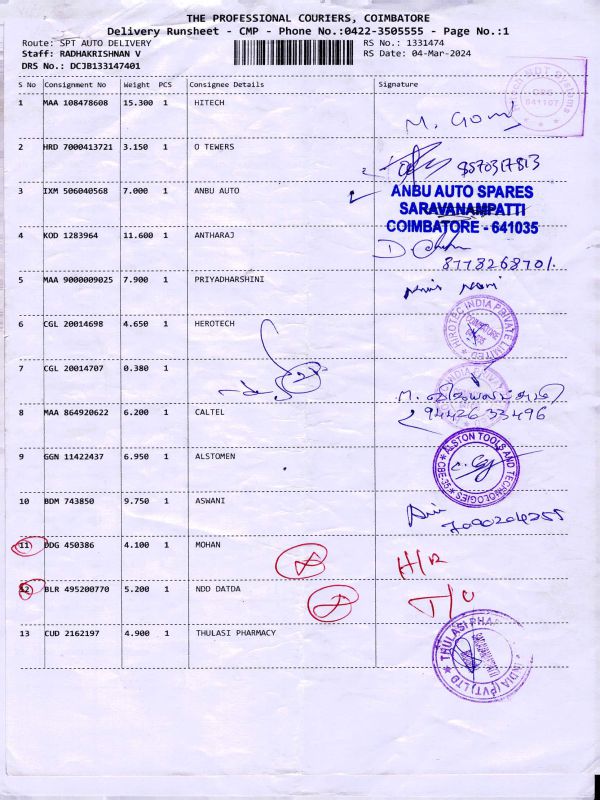 THE PROFESSIONAL COURIERS, COIMBATORE
Delivery Runsheet - CMP - Phone No.:0422-3505555 - Page No.:1
Route: SPT AUTO DELIVERY RS No.: 1331474
Staff: RADHAKRISHNAN V RS Date: 04-Mar-2024
DRS No.: DCJB133147401
S No Consignment No Weight PCS Consignee Details Signature
1 MAA 108478608 15.300 1 HITECH
641107
M. Gomi
2 HRD 7000413721 3.150 1 O TEWERS
8570317813
3 IXM 506040568 7.000 1 ANBU AUTO
ANBU AUTO SPARES
SARAVANAMPATTI
COIMBATORE - 641035
4 KOD 1283964 11.600 1 ANTHARAJ
8778268701.
5 MAA 9000009025 7.900 1 PRIYADHARSHINI
6 CGL 20014698 4.650 1 HEROTECH
HIROTEC INDIA PRIVATE LIMITED
COIMBATORE
7 CGL 20014707 0.380 1
8 MAA 864920622 6.200 1 CALTEL
94426 33496
9 GGN 11422437 6.950 1 ALSTOMEN
ALSTON TOOLS AND TECHNOLOGIES
CBE-35
10 BDM 743850 9.750 1 ASWANI
7090204255
11 DDG 450386 4.100 1 MOHAN
H/R
12 BLR 495200770 5.200 1 NDD DATDA
T/O
13 CUD 2162197 4.900 1 THULASI PHARMACY
THULASI PHARMACY INDIA (PVT) LTD